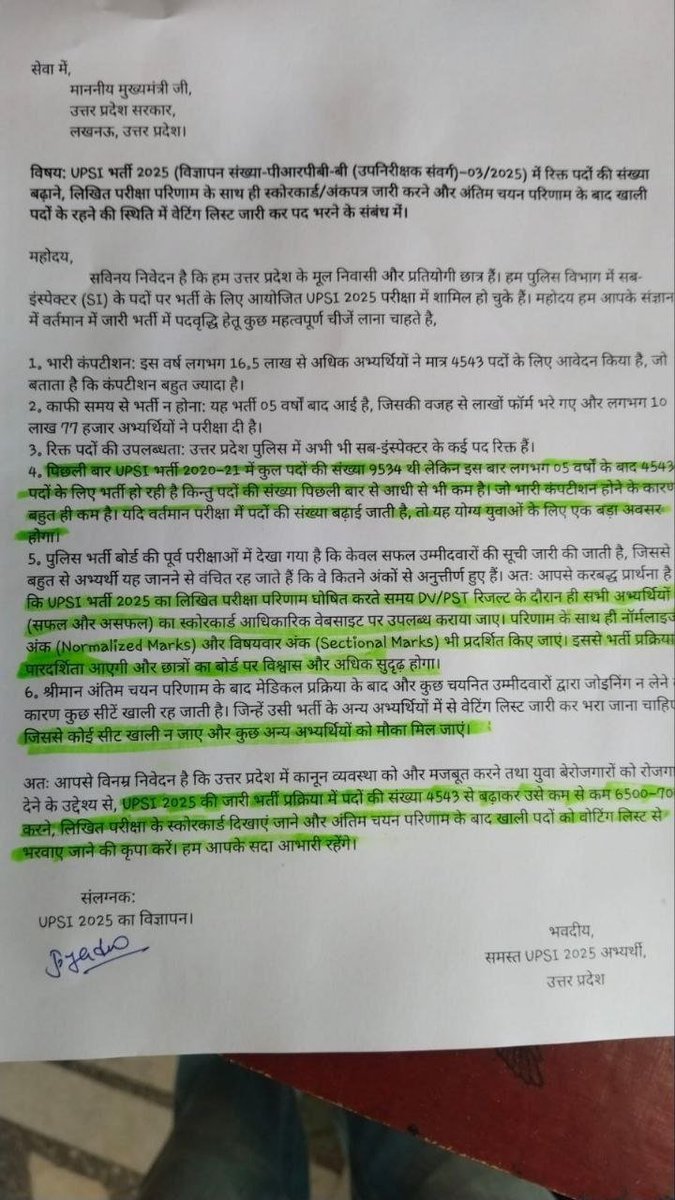 सेवा में,
माननीय मुख्यमंत्री जी,
उत्तर प्रदेश सरकार,
लखनऊ, उत्तर प्रदेश।
विषय: UPSI भर्ती 2025 (विज्ञापन संख्या-पीआरपीबी-बी (उपनिरीक्षक संवर्ग)-03/2025) में रिक्त पदों की संख्या
बढ़ाने, लिखित परीक्षा परिणाम के साथ ही स्कोरकार्ड/अंकपत्र जारी करने और अंतिम चयन परिणाम के बाद खाली
पदों के रहने की स्थिति में वेटिंग लिस्ट जारी कर पद भरने के संबंध में।
महोदय,
सविनय निवेदन है कि हम उत्तर प्रदेश के मूल निवासी और प्रतियोगी छात्र हैं। हम पुलिस विभाग में सब-
इंस्पेक्टर (SI) के पदों पर भर्ती के लिए आयोजित UPSI 2025 परीक्षा में शामिल हो चुके हैं। महोदय हम आपके संज्ञान
में वर्तमान में जारी भर्ती में पदवृद्धि हेतू कुछ महत्वपूर्ण चीजें लाना चाहते है,
1. भारी कंपटीशन: इस वर्ष लगभग 16.5 लाख से अधिक अभ्यर्थियों ने मात्र 4543 पदों के लिए आवेदन किया है, जो
बताता है कि कंपटीशन बहुत ज्यादा है।
2. काफी समय से भर्ती न होना: यह भर्ती 05 वर्षों बाद आई है, जिसकी वजह से लाखों फॉर्म भरे गए और लगभग 10
लाख 77 हजार अभ्यर्थियों ने परीक्षा दी है।
3. रिक्त पदों की उपलब्धता: उत्तर प्रदेश पुलिस में अभी भी सब-इंस्पेक्टर के कई पद रिक्त हैं।
4. पिछली बार UPSI भर्ती 2020-21 में कुल पदों की संख्या 9534 थी लेकिन इस बार लगभग 05 वर्षों के बाद 4543
पदों के लिए भर्ती हो रही है किन्तु पदों की संख्या पिछली बार से आधी से भी कम है। जो भारी कंपटीशन होने के कारण
बहुत ही कम है। यदि वर्तमान परीक्षा में पदों की संख्या बढ़ाई जाती है, तो यह योग्य युवाओं के लिए एक बड़ा अवसर
होगा।
5. पुलिस भर्ती बोर्ड की पूर्व परीक्षाओं में देखा गया है कि केवल सफल उम्मीदवारों की सूची जारी की जाती है, जिससे
बहुत से अभ्यर्थी यह जानने से वंचित रह जाते हैं कि वे कितने अंकों से अनुत्तीर्ण हुए हैं। अतः आपसे करबद्ध प्रार्थना है
कि UPSI भर्ती 2025 का लिखित परीक्षा परिणाम घोषित करते समय DV/PST रिजल्ट के दौरान ही सभी अभ्यर्थियों
(सफल और असफल) का स्कोरकार्ड आधिकारिक वेबसाइट पर उपलब्ध कराया जाए। परिणाम के साथ ही नॉर्मलाइज
अंक (Normalized Marks) और विषयवार अंक (Sectional Marks) भी प्रदर्शित किए जाएं। इससे भर्ती प्रक्रिया
पारदर्शिता आएगी और छात्रों का बोर्ड पर विश्वास और अधिक सुदृढ़ होगा।
6. श्रीमान अंतिम चयन परिणाम के बाद मेडिकल प्रक्रिया के बाद और कुछ चयनित उम्मीदवारों द्वारा जोइनिंग न लेने
कारण कुछ सीटें खाली रह जाती है। जिन्हें उसी भर्ती के अन्य अभ्यर्थियों में से वेटिंग लिस्ट जारी कर भरा जाना चाहिए
जिससे कोई सीट खाली न जाए और कुछ अन्य अभ्यर्थियों को मौका मिल जाएं।
अतः आपसे विनम्र निवेदन है कि उत्तर प्रदेश में कानून व्यवस्था को और मजबूत करने तथा युवा बेरोजगारों को रोजगा
देने के उद्देश्य से, UPSI 2025 की जारी भर्ती प्रक्रिया में पदों की संख्या 4543 से बढ़ाकर उसे कम से कम 6500-70
करने, लिखित परीक्षा के स्कोरकार्ड दिखाएं जाने और अंतिम चयन परिणाम के बाद खाली पदों को वोटिंग लिस्ट से
भरवाए जाने की कृपा करें। हम आपके सदा आभारी रहेंगे।
संलग्नक:
UPSI 2025 का विज्ञापन।
भवदीय,
समस्त UPSI 2025 अभ्यर्थी,
उत्तर प्रदेश